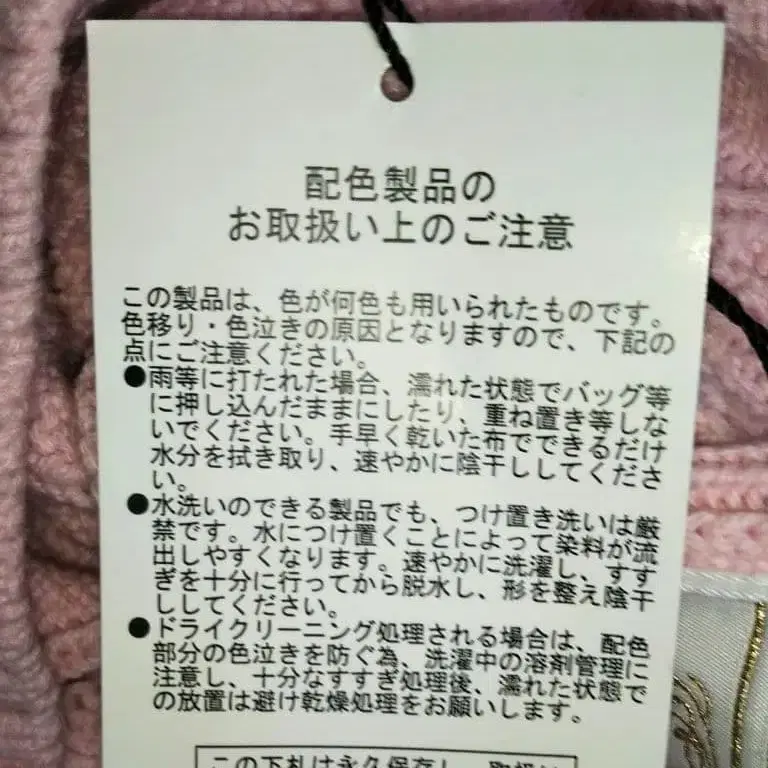 配色製品の
お取扱い上のご注意
この製品は、色が何色も用いられたものです。
色移り・色泣きの原因となりますので、下記の
点にご注意ください。
●雨等に打たれた場合、濡れた状態でバッグ等
に押し込んだままにしたり、重ね置き等しな
いでください。手早く乾いた布でできるだけ
水分を拭き取り、速やかに陰干ししてくださ
い。
●水洗いのできる製品でも、つけ置き洗いは厳
禁です。水につけ置くことによって染料が流
出しやすくなります。速やかに洗濯し、すす
ぎを十分に行ってから脱水し、形を整え陰干
ししてください。
●ドライクリーニング処理される場合は、配色
部分の色泣きを防ぐ為、洗濯中の溶剤管理に
注意し、十分なすすぎ処理後、濡れた状態で
の放置は避け乾燥処理をお願いします。
この下札は永久保存し、取扱い